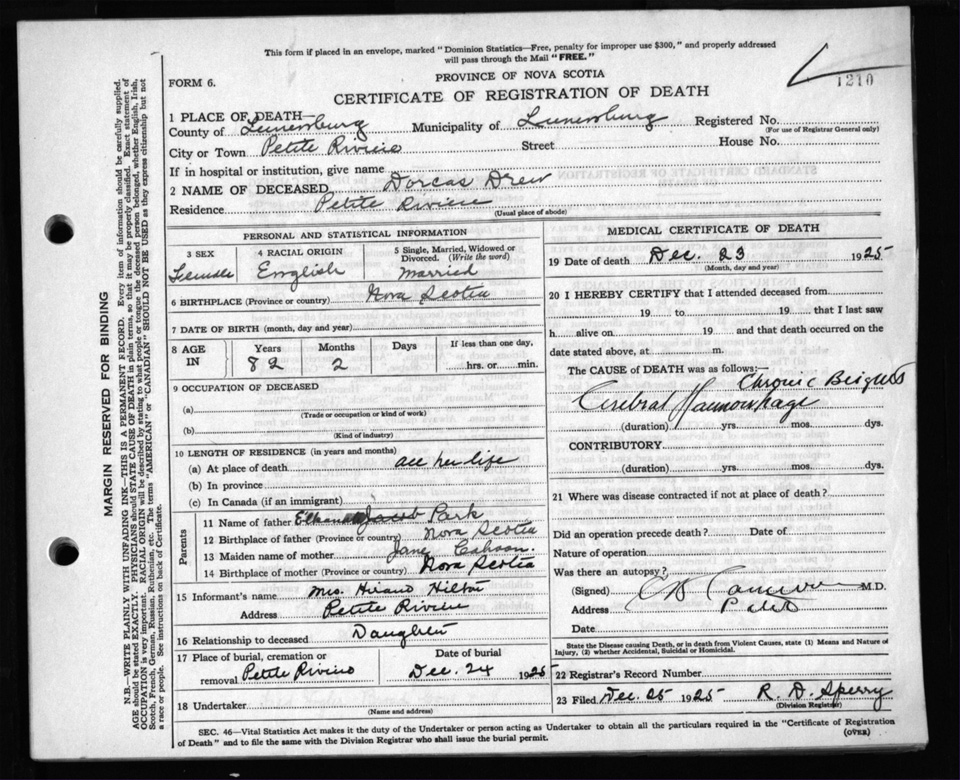 This form if placed in an envelope, marked "Dominion Statistics—Free, penalty for improper use $300," and properly addressed
will pass through the Mail "FREE."
FORM 6.
PROVINCE OF NOVA SCOTIA
1210
CERTIFICATE OF REGISTRATION OF DEATH
1 PLACE OF DEATH—
County of Lunenburg Municipality of Lunenburg Registered No.
(For use of Registrar General only)
City or Town Petite Riviere Street House No.
If in hospital or institution, give name
2 NAME OF DECEASED Dorcas Drew
Residence Petite Riviere
(Usual place of abode)
PERSONAL AND STATISTICAL INFORMATION
3 SEX 4 RACIAL ORIGIN 5 Single, Married, Widowed or
Divorced. (Write the word)
Female English Married
6 BIRTHPLACE (Province or country) Nova Scotia
7 DATE OF BIRTH (month, day and year)
8 AGE IN Years Months Days If less than one day,
82 2 hrs. or min.
9 OCCUPATION OF DECEASED
(a)
(Trade or occupation or kind of work)
(b)
(Kind of industry)
10 LENGTH OF RESIDENCE (in years and months)
(a) At place of death all her life
(b) In province
(c) In Canada (if an immigrant)
Parents
11 Name of father Jacob Park
12 Birthplace of father (Province or country) Nova Scotia
13 Maiden name of mother Jane Cahoon.
14 Birthplace of mother (Province or country) Nova Scotia
15 Informant's name Mrs. Hiram Hilton
Address Petite Riviere
16 Relationship to deceased Daughter
17 Place of burial, cremation or Date of burial
removal Petite Riviere Dec. 24 1925
18 Undertaker
(Name and address)
MEDICAL CERTIFICATE OF DEATH
19 Date of death Dec. 23 1925
(Month, day and year)
20 I HEREBY CERTIFY that I attended deceased from
19 to 19 that I last saw
h alive on 19 and that death occurred on the
date stated above, at m.
The CAUSE of DEATH was as follows:—
Chronic
Cerebral Haemorrhage
(duration) yrs. mos. dys.
CONTRIBUTORY
(duration) yrs. mos. dys.
21 Where was disease contracted if not at place of death?
Did an operation precede death? Date of
Nature of operation
Was there an autopsy?
(Signed) M.D.
Address
Date
State the Disease causing Death, or in death from Violent Causes, state (1) Means and Nature of
Injury, (2) whether Accidental, Suicidal or Homicidal.
22 Registrar's Record Number
23 Filed Dec. 25 1925 R. D. Sperry
(Division Registrar)
SEC. 46—Vital Statistics Act makes it the duty of the Undertaker or person acting as Undertaker to obtain all the particulars required in the "Certificate of Registration
of Death" and to file the same with the Division Registrar who shall issue the burial permit.
(OVER)
MARGIN RESERVED FOR BINDING
N.B.—WRITE PLAINLY WITH UNFADING INK—THIS IS A PERMANENT RECORD. Every item of information should be carefully supplied.
AGE should be stated EXACTLY. PHYSICIANS should STATE CAUSE OF DEATH in plain terms, so that it may be properly classified. Exact statement of
OCCUPATION is very important. RACIAL ORIGIN will be described by stating to what people or tongue the deceased person belonged, whether English, Irish,
Scotch, French, German, Russian, Ruthenian, etc. The terms "AMERICAN" or "CANADIAN" SHOULD NOT BE USED as they express citizenship but not
a race or people. See instructions on back of Certificate.